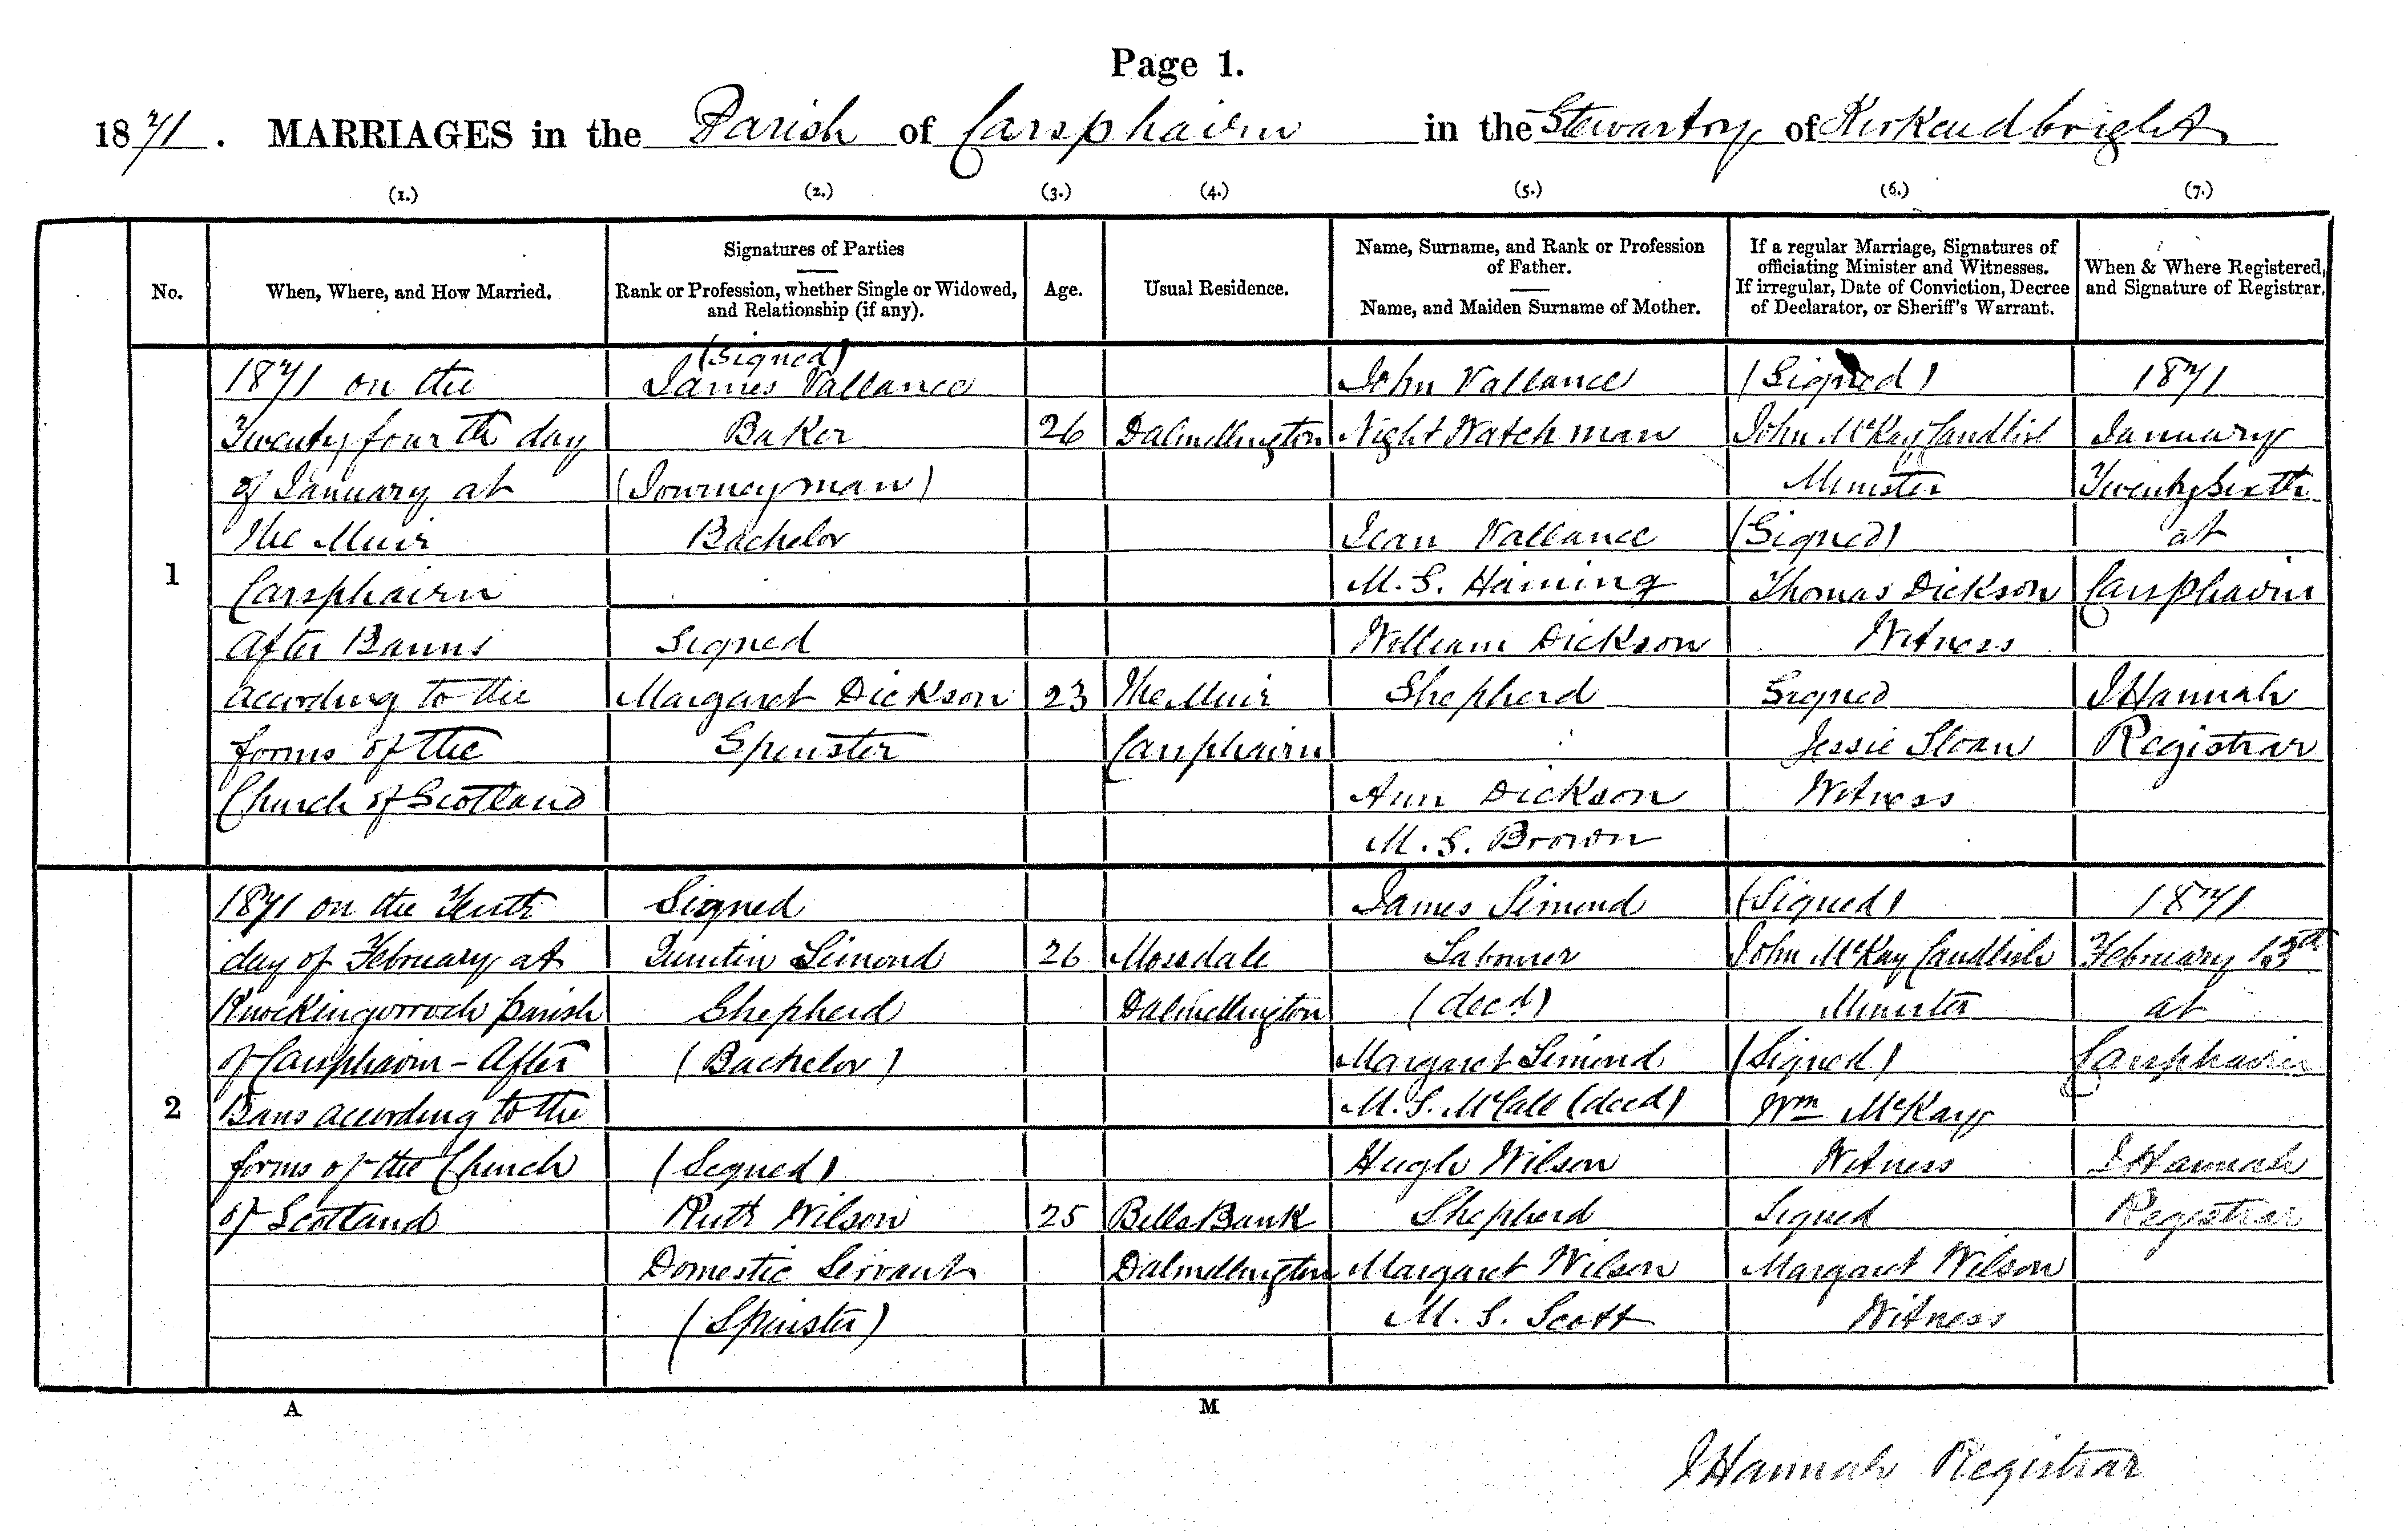 Page 1.
1871. MARRIAGES in the Parish of Carsphairn in the Stewartry of Kirkcudbright
(1.) (2.) (3.) (4.) (5.) (6.) (7.)
No.
When, Where, and How Married.
Signatures of Parties
Rank or Profession, whether Single or Widowed,
and Relationship (if any).
Age.
Usual Residence.
Name, Surname, and Rank or Profession
of Father.
Name, and Maiden Surname of Mother.
If a regular Marriage, Signatures of
officiating Minister and Witnesses.
If irregular, Date of Conviction, Decree
of Declarator, or Sheriff's Warrant.
When & Where Registered,
and Signature of Registrar.
1
1871 on the
Twenty fourth day
of January at
The Muir
Carsphairn
After Banns
according to the
forms of the
Church of Scotland
(Signed)
James Vallance
Baker
(Journeyman)
Bachelor
Signed
Margaret Dickson
Spinster
26
23
Dalmellington
The Muir
Carsphairn
John Vallance
Night Watchman
Jean Vallance
M.S. Haining
William Dickson
Shepherd
Ann Dickson
M.S. Brown
(Signed)
John McKay Candlish
Minister
(Signed)
Thomas Dickson
Witness
Signed
Jessie Sloan
Witness
1871
January
Twenty Sixth
at
Carsphairn
J Hannah
Registrar
2
1871 on the Tenth
day of February at
Knockingorroch parish
of Carsphairn - After
Bans according to the
forms of the Church
of Scotland
Signed
Quintin Limond
Shepherd
(Bachelor)
(Signed)
Ruth Wilson
Domestic Servant
(Spinster)
26
25
Mossdale
Dalmellington
Bells Bank
Dalmellington
James Limond
Labourer
(decd)
Margaret Limond
M.S. McCall (decd)
Hugh Wilson
Shepherd
Margaret Wilson
M.S. Scott
(Signed)
John McKay Candlish
Minister
(Signed)
Wm McKay
Witness
Signed
Margaret Wilson
Witness
1871
February 13th
at
Carsphairn
J Hannah
Registrar
A M
J Hannah Registrar